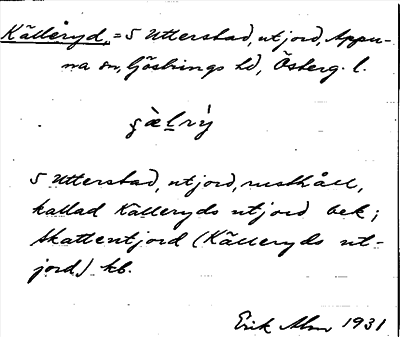 Källeryd, = S Utterstad, utjord, Appu-
na sn, Göstrings hd, Österg. l.
S Utterstad, utjord, rusthåll,
kallad Källeryds utjord bek;
Skatteutjord (Källeryds ut-
jord) kb.
Erik Alm 1931